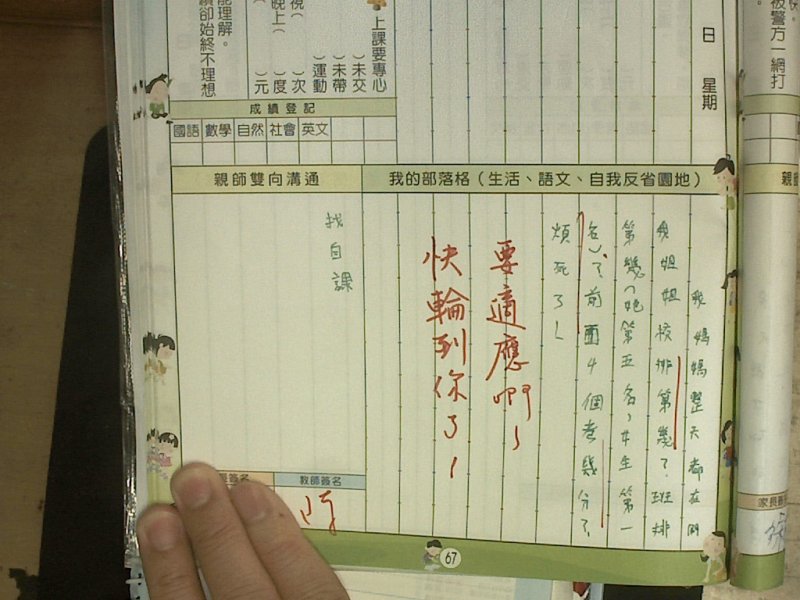 日 星期
上課要專心
( )未交
( )未帶
( )運動
( )次
( )度
( )元
能理解。
績卻始終不理想
被警方一網打
成績登記
國語 數學 自然 社會 英文
親師雙向溝通
我的部落格（生活、語文、自我反省園地）
我媽媽整天都在問
我姐姐校排第幾？班排
第幾（她第五名，女生第一
名），前面4個考幾分？
煩死了！
要適應啊！
快輪到你了！
找自課
教師簽名
67